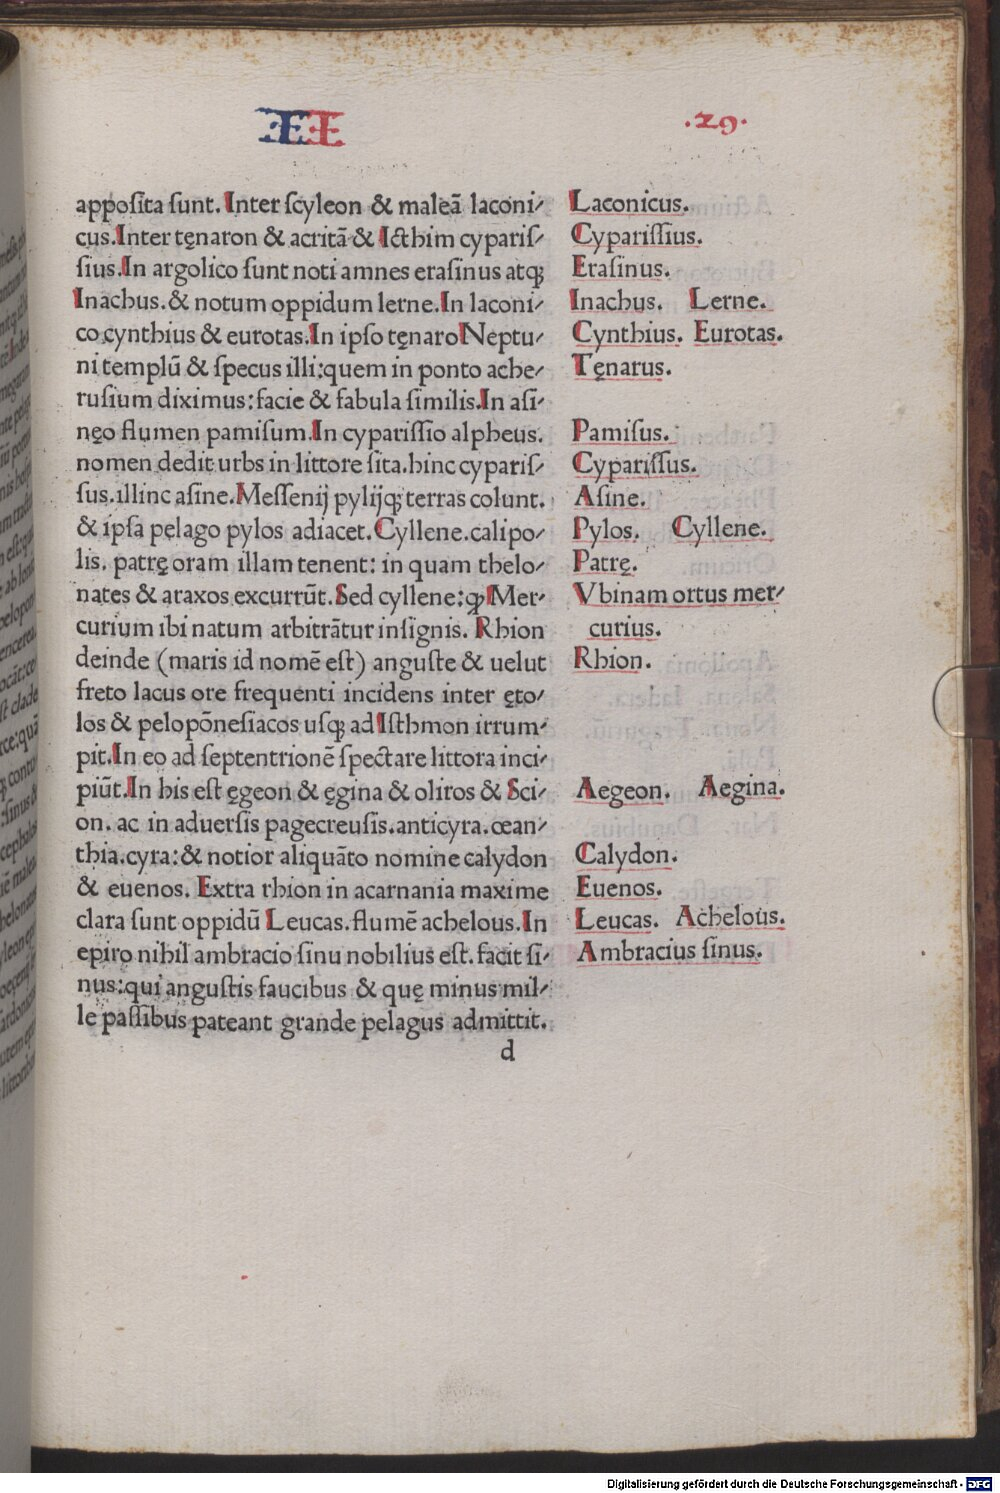 ·E·E·
·29·
apposita sunt. Inter scyleon & maleā laconi⸗
cus.Inter tęnaron & acritā & Icthim cyparis⸗
sius.In argolico sunt noti amnes erasinus atqꝫ
Inachus.& notum oppidum lerne.In laconi⸗
co cynthius & eurotas.In ipso tęnaro Neptu⸗
ni templū & specus illi:quem in ponto ache⸗
rusium diximus:facie & fabula similis.In asi⸗
nęo flumen pamisum.In cyparissio alpheus.
nomen dedit urbs in littore sita.hinc cyparis⸗
sus.illinc asine.Messenij pylijqꝫ terras colunt.
& ipsa pelago pylos adiacet.Cyllene.calipo⸗
lis. patrę oram illam tenent: in quam thelo⸗
nates & araxos excurrūt.Sed cyllene:ꝙ Mer⸗
curium ibi natum arbitrātur insignis. Rhion
deinde (maris id nomē est) anguste & uelut
freto lacus ore frequenti incidens inter ęto⸗
los & pelopōnesiacos usqꝫ ad Isthmon irrum⸗
pit.In eo ad septentrionē spectare littora inci⸗
piūt.In his est ęgeon & ęgina & oliros & Sci⸗
on. ac in aduersis pagecreusis.anticyra.œan⸗
thia.cyra:& notior aliquāto nomine calydon
& euenos. Extra rhion in acarnania maxime
clara sunt oppidū Leucas.flumē achelous.In
epiro nihil ambracio sinu nobilius est. facit si⸗
nus:qui angustis faucibus & quę minus mil⸗
le passibus pateant grande pelagus admittit.
d
Laconicus.
Cyparissius.
Erasinus.
Inachus. Lerne.
Cynthius. Eurotas.
Tęnarus.
Pamisus.
Cyparissus.
Asine.
Pylos. Cyllene.
Patrę.
Vbinam ortus mer⸗
curius.
Rhion.
Aegeon. Aegina.
Calydon.
Euenos.
Leucas. Achelous.
Ambracius sinus.
Digitalisierung gefördert durch die Deutsche Forschungsgemeinschaft - DFG